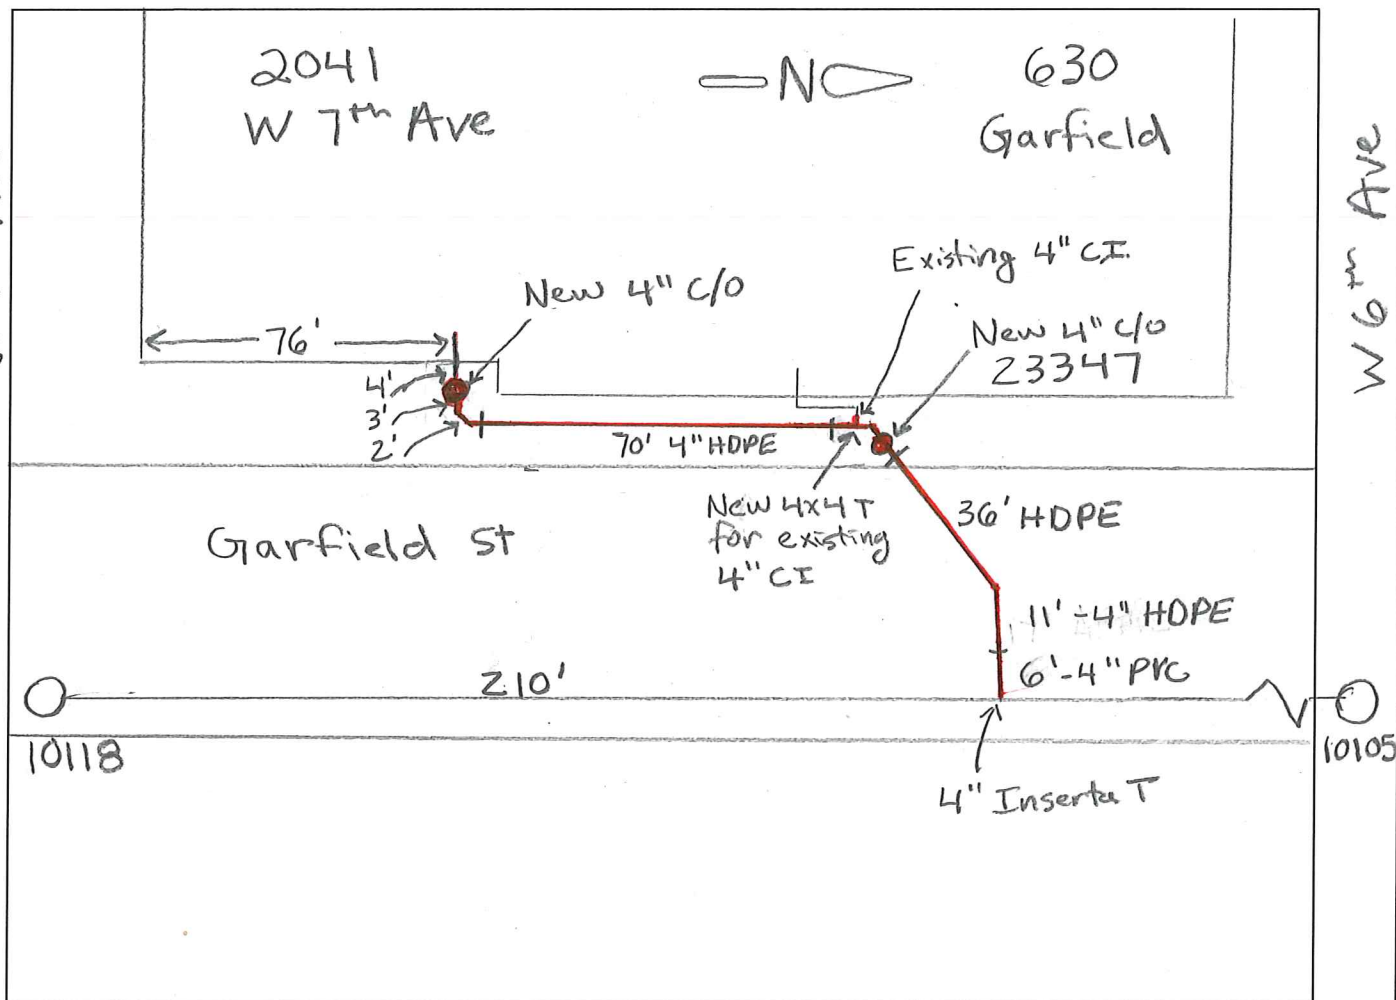 2041
W 7th Ave
N
630
Garfield
W 6th Ave
Existing 4" C.I.
New 4" C/O
New 4" C/O
23347
76'
4'
3'
2'
70' 4" HDPE
New 4x4 T
for existing
4" CI
36' HDPE
Garfield St
11'-4" HDPE
6'-4" PVC
210'
10118
10105
4" Inserta T